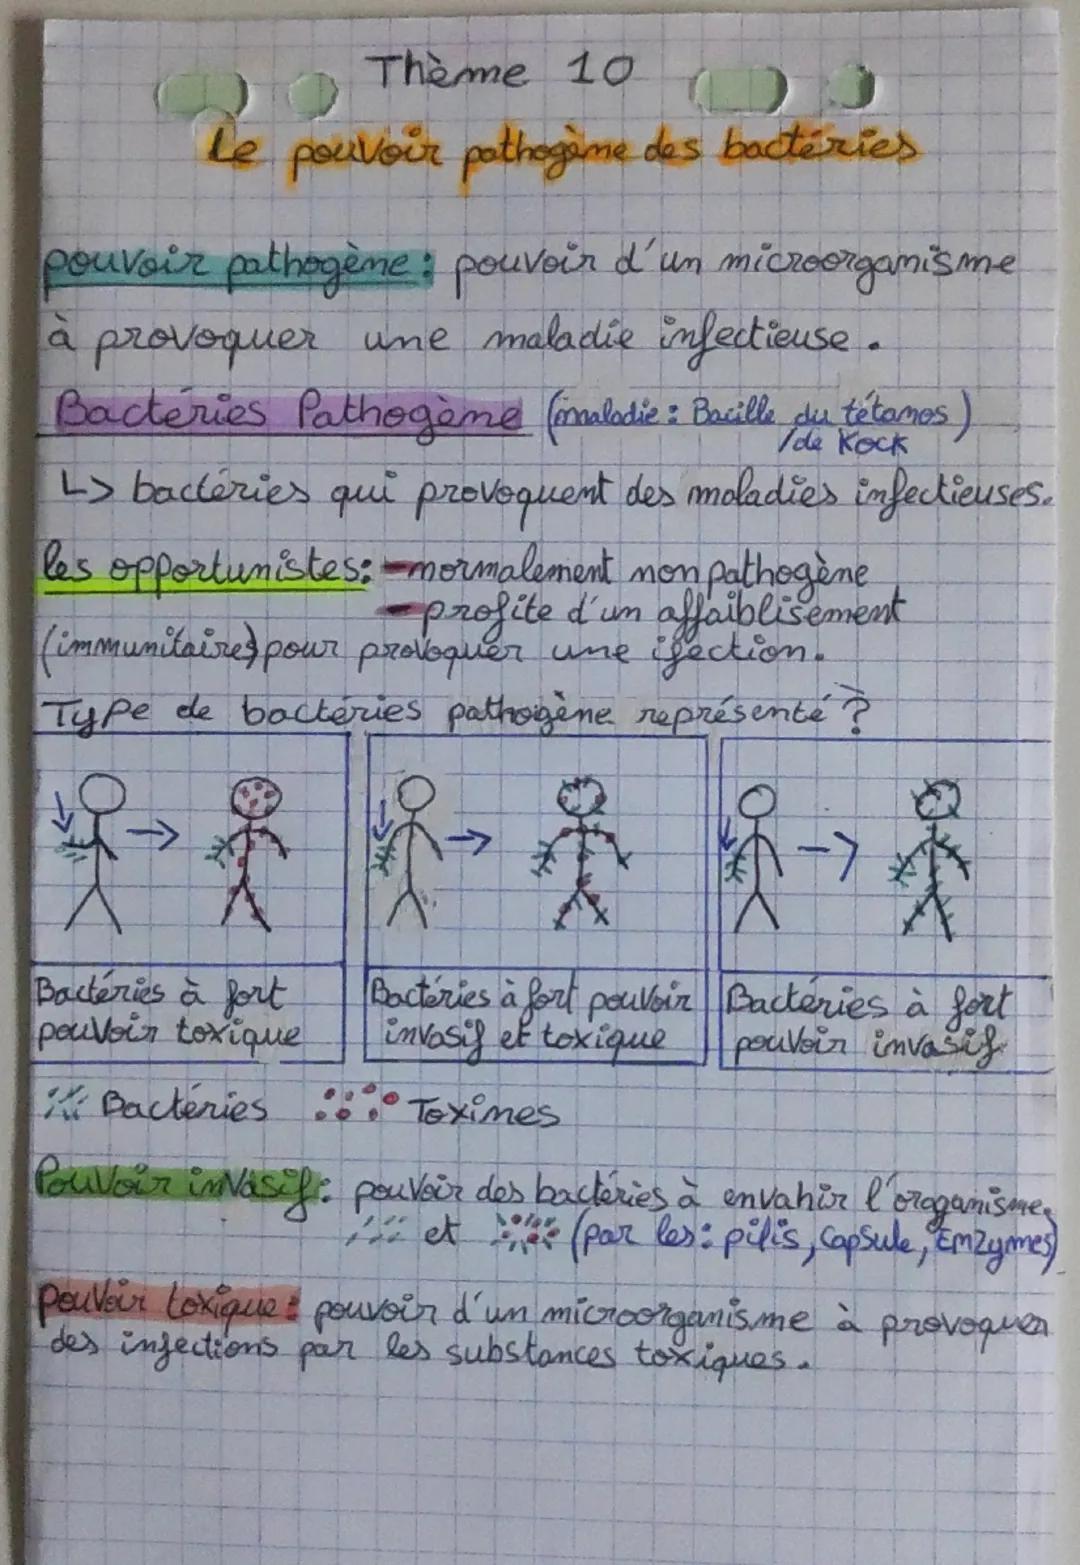 Thème 10
Le pouvoir pathogène des bactéries
pouvoir pathogène : pouvoir d'un microorganisme
à provoquer une maladie infectieuse.
Bactéries Pathogène (maladie : Bacille du tétanos)
/de Kock
↳ bactéries qui provoquent des maladies infectieuses.
les opportunistes : - normalement non pathogène
- profite d'un affaiblisement
(immunitaire) pour provoquer une ifection.
Type de bactéries pathogène représenté ?
Bactéries à fort
pouvoir toxique
Bactéries à fort pouvoir
invasif et toxique
Bactéries à fort
pouvoir invasif
Bactéries Toxines
Pouvoir invasif : pouvoir des bactéries à envahir l'oroganisme,
et (par les : pilis, capsule, Enzymes)
pouvoir toxique : pouvoir d'un microorganisme à provoquer
des infections par les substances toxiques.